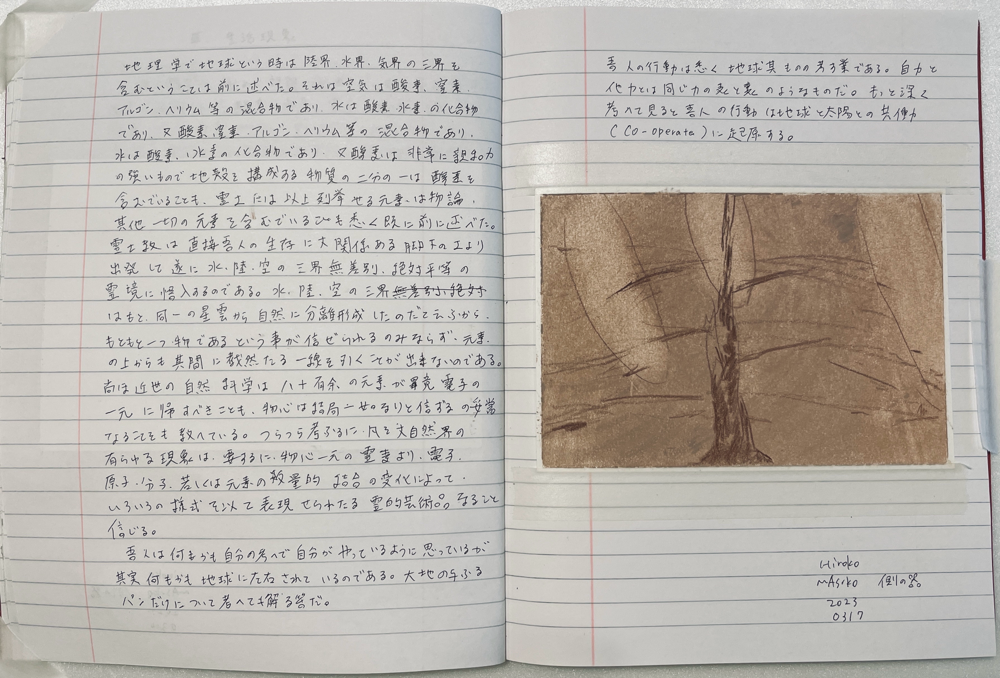 地理学で地球という時は陸界、水界、気界の三界を
含むということは前に述べた。それは空気は酸素、窒素、
アルゴン、ヘリウム等の混合物であり、水は酸素、水素の化合物
であり、又酸素、窒素、アルゴン、ヘリウム等の混合物であり、
水は酸素、水素の化合物であり、又酸素は非常に親和力
の強いもので地殻を構成する物質の二分の一は酸素を
含むでいることも、霊土には以上列挙せる元素は勿論、
其他一切の元素を含むでいることも悉く既に前に述べた。
霊土教は直接吾人の生存に大関係ある脚下の土より
出発して遂に水、陸、空の三界無差別、絶対平等の
霊境に悟入するのである。水、陸、空の三界無差別、絶対
はもと、同一の星雲から自然に分離形成したのだて云ふから、
もともと一つ物であるという事が信ぜられるのみならず、元素
の上からも其間に截然たる一線を引くことが出来ないのである。
尚ほ近世の自然科学は八十有余の元素が畢竟電子の
一元に帰すべきことも、物心は結局一如なりと信ずるの妥当
なることをも教へている。つらつら考ふるに、凡そ大自然界の
有らゆる現象は、要するに、物心一元の霊素より、電子、
原子、分子、若しくは元素の数量的結合の変化によって、
いろいろの様式を以て表現せられたる霊的芸術品なること
信じる。
吾人は何もかも自分の考へで自分がやっているように思っているが
其実何もかも地球に左右されているのである。大地の与ふる
パンだけについて考へても解る筈だ。
吾人の行動は悉く地球其ものの考え業である。自力と
他力とは同じ力の表と裏のようなものだ。もっと深く
考へて見ると吾人の行動は地球と太陽との共働
(CO-operate)に起原する。
Hiroko
mAsiko 個の器
2023
0317